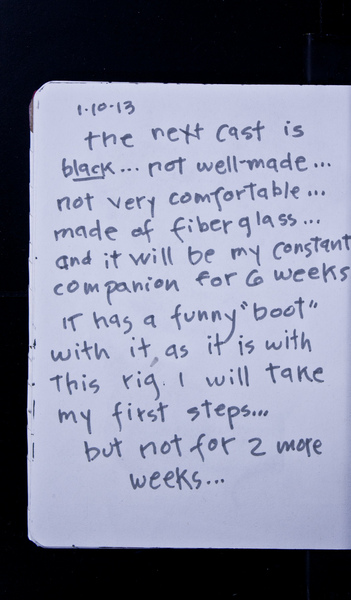 1·10·13
the next cast is
black... not well-made...
not very comfortable...
made of fiberglass...
and it will be my constant
companion for 6 weeks
IT has a funny "boot"
with it, as it is with
this rig. I will take
my first steps...
but not for 2 more
weeks...